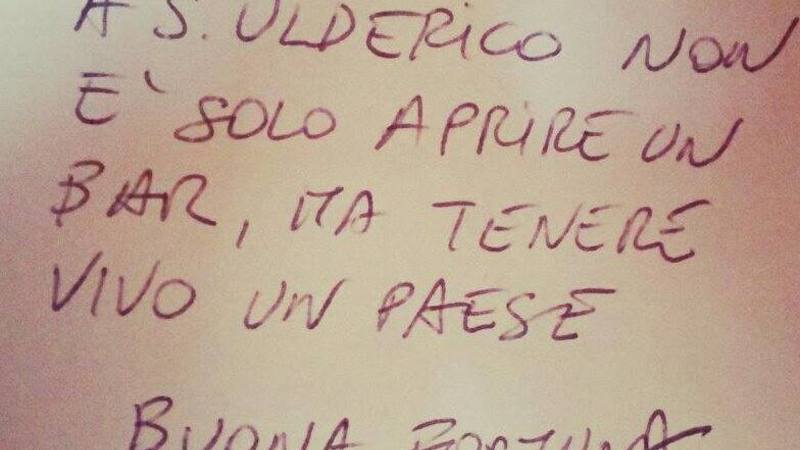 A S. ULDERICO NON
E' SOLO APRIRE UN
BAR, MA TENERE
VIVO UN PAESE
BUONA FORTUNA